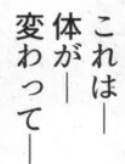 これは―
体が―
変わって―